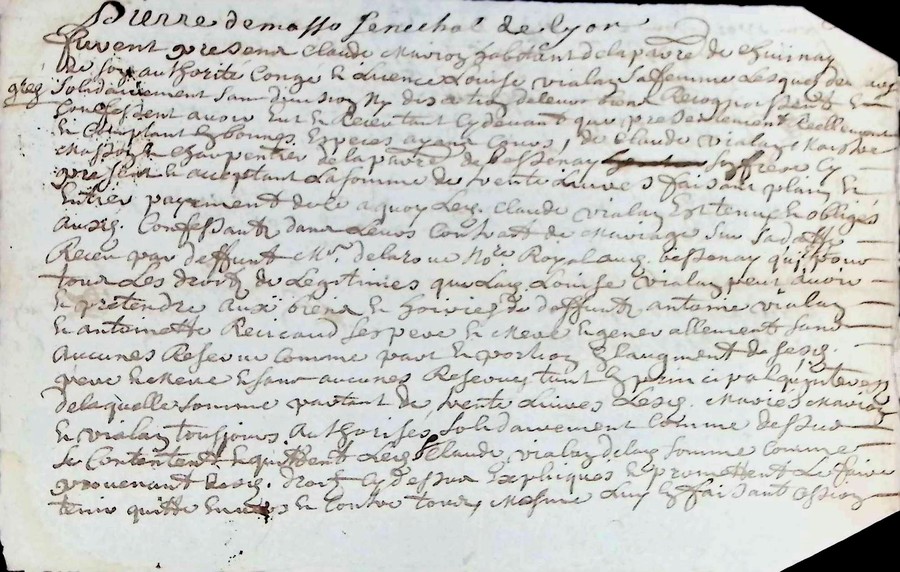 Pierre demasso senechal de Lyon
furent presens Claude Mavion habitant de la parre de Chuisnay
De son authorité Congé & Licence Louise vialay sa femme Lesquels de
solidairement sans division ny discution de leurs biens Recognoissent &
Confessent avoir Eut & Receu tant Cy devant que presentement Reellement
En Comptant En bonnes Especes ayant Cours, de Claude vialay Maistre
Masson & charpentier de la parre de Bessenay son frere Cy
present & acceptant La somme de trente Livres faisant plain &
Entier payement de ce a quoy Led. Claude vialay Est tenu & obligé
ausd. Confessants dans Leurs Contract de Mariage sur sa datte
Receu par deffunt Me. delaroue Nore Royal aud. bessenay qu pour
tous Les droits de Legitimes que Lad. Louise vialay peut avoir
& pretendre aux biens & hoiries de deffuncts antoine vialay
& antoinette Reucaud ses pere & Mere & generallement sans
aucunes Reserve Comme part & portion & laugment de sesd.
pere & Mere & sans aucunes Reserves tant En principal qu'interest
de laquelle somme partant de trente Livres Lesd. Mariés Mavion
& vialay tousjours authorisés, solidairement Comme dessus
se Contentent & quittent Led. Claude vialay de lad. somme Comme
provenant desd. droits Cy dessus Expliqués & promettent Le faire
tenir quitte Envers & Contre tous, Mesme Luy En faisant Cession